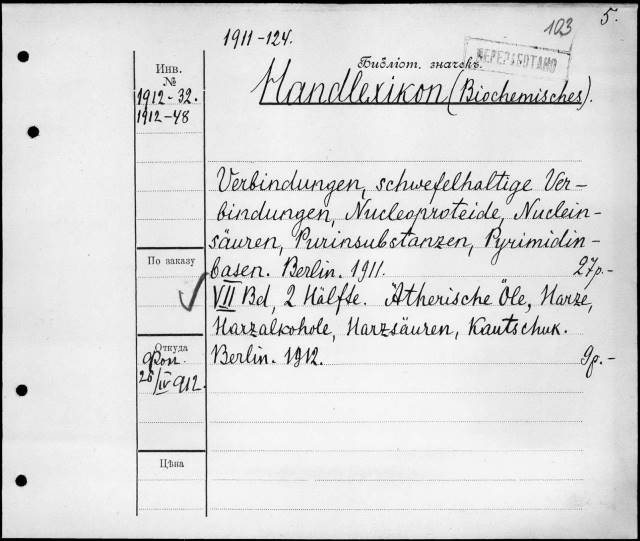 103
5.
1911-124.
Библіот. значекъ.
ПЕРЕРАБОТАНО
Инв.
№
1912-32.
1912-48
Handlexikon (Biochemisches).
Verbindungen, schwefelhaltige Ver-
bindungen, Nucleoproteide, Nuclein-
säuren, Purinsubstanzen, Pyrimidin-
basen. Berlin. 1911. 27р.-
По заказу
VII Bd, 2 Hälfte. Ätherische Öle, Harze,
Harzalkohole, Harzsäuren, Kautschuk.
Berlin. 1912. 9р.-
Откуда
Фок.
26/IV 912.
Цѣна